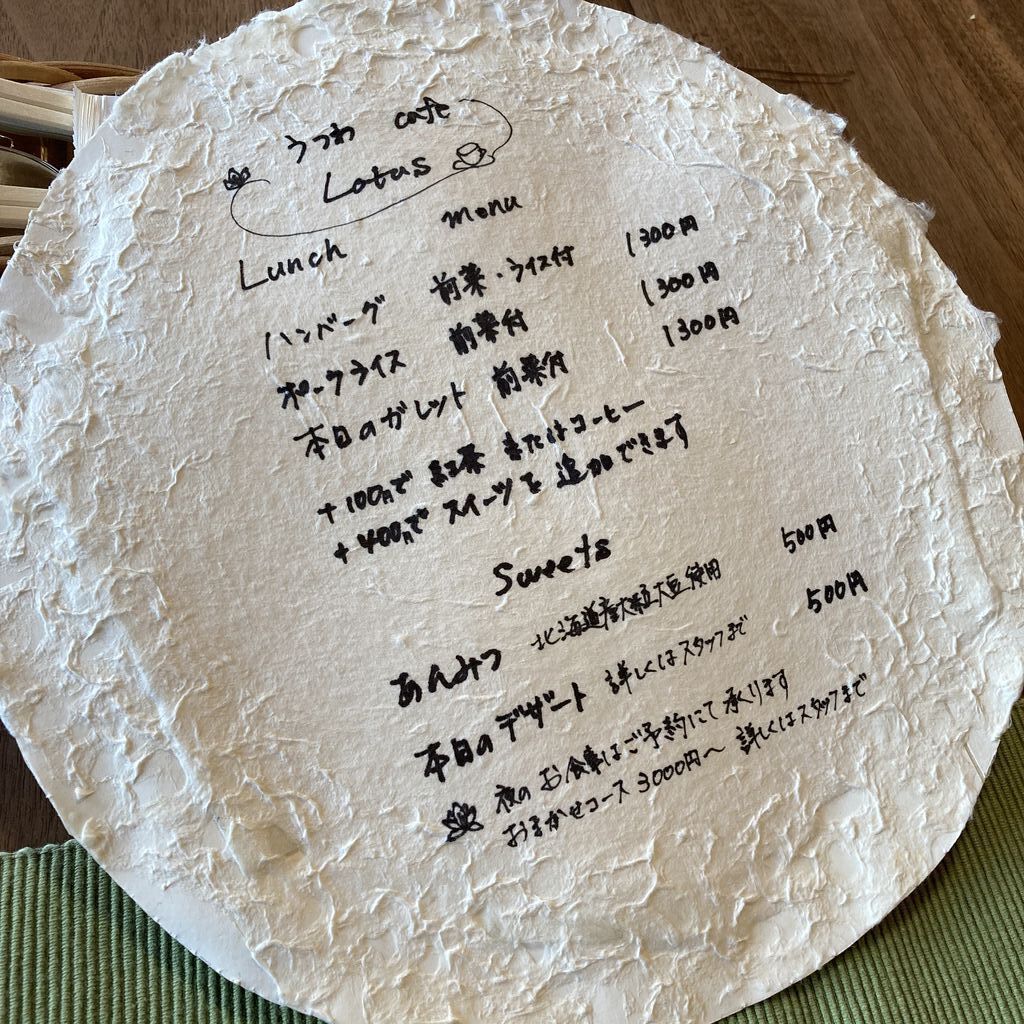 うつわ cafe
Lotus
Lunch menu
ハンバーグ 前菜・ライス付 1300円
ポークライス 前菜付 1300円
本日のガレット 前菜付 1300円
+100円で 紅茶 またはコーヒー
+400円で スイーツを 追加できます
Sweets
あんみつ 北海道産大粒大豆使用 500円
本日のデザート 詳しくはスタッフまで 500円
夜の お食事はご予約にて承ります
おまかせコース 3000円〜 詳しくはスタッフまで